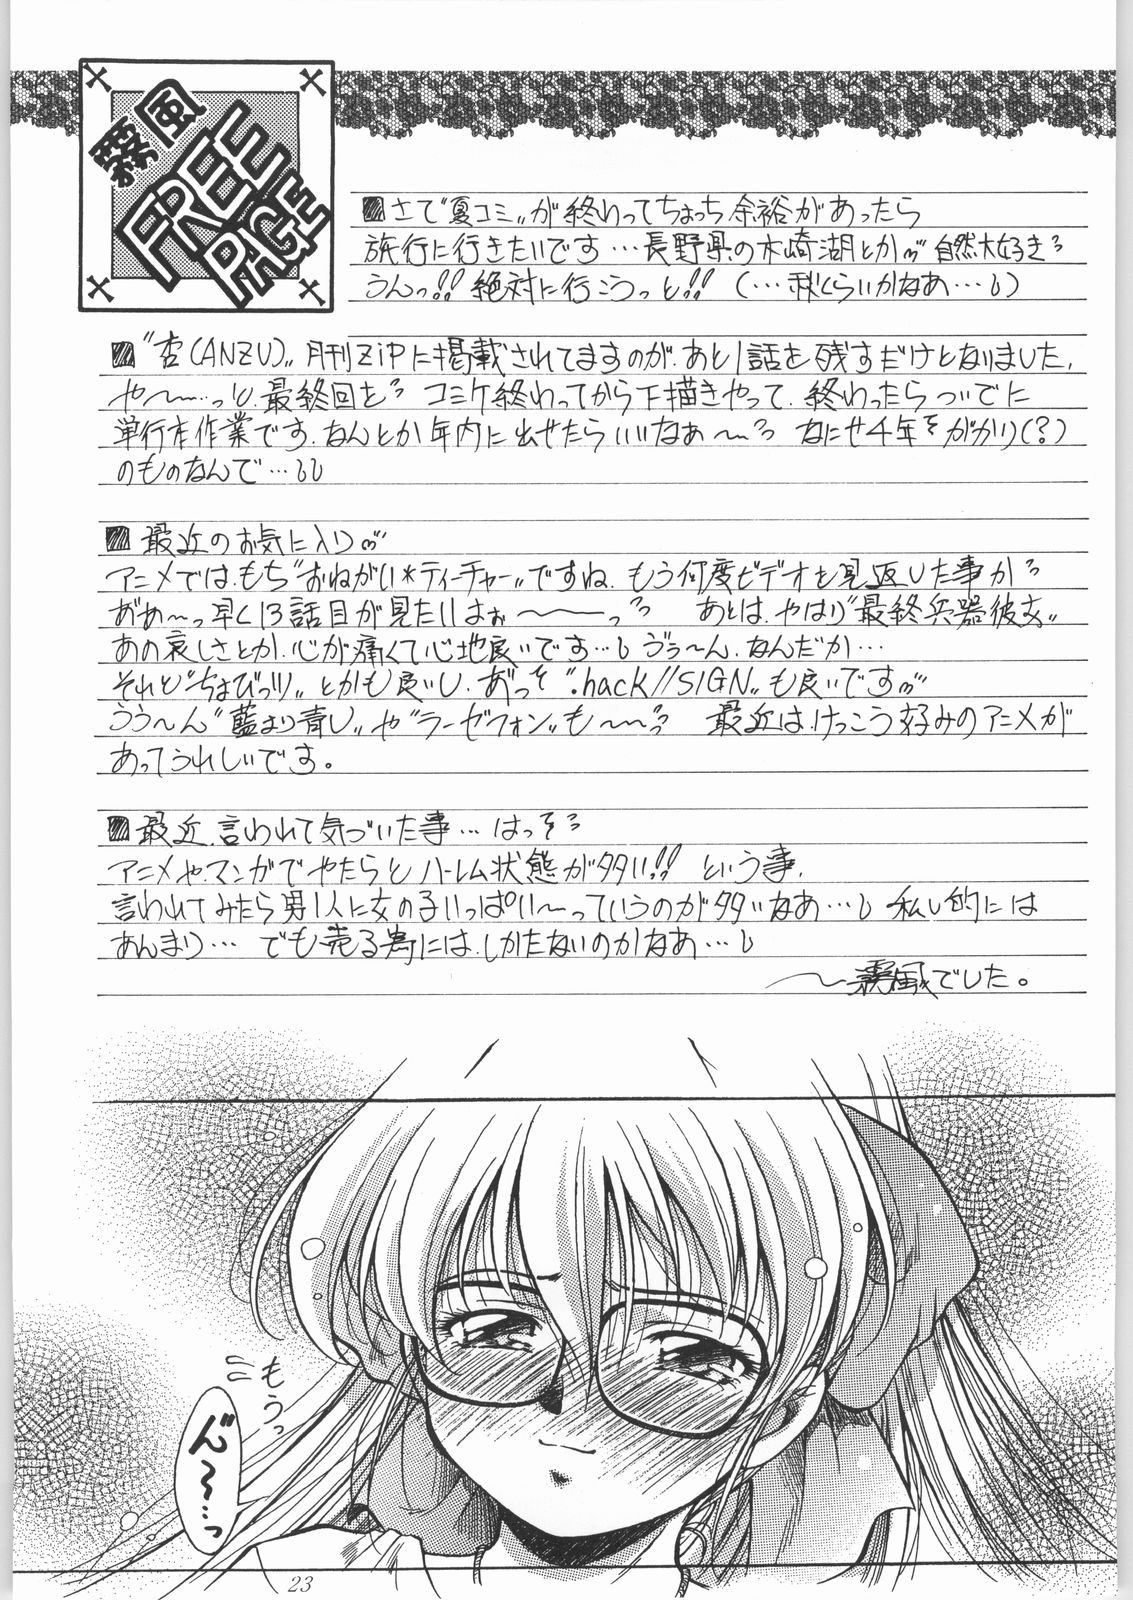 霧風
FREE
PAGE
■さて"夏コミ"が終わってちょっち余裕があったら
旅行に行きたいです…長野県の木崎湖とか 自然大好き
うんっ!!絶対に行こうっと!!(…秋くらいかなあ…)
■"杏(ANZU)"月刊ZiPに掲載されてますのが、あと1話を残すだけとなりました、
や〜〜っと、最終回を コミケ終わってから下描きやって、終わったらついでに
単行本作業です、なんとか年内に出せたらいいなぁ〜〜 なにせ4年をがかり(?)
のものなんで…
■最近のお気に入り
アニメでは、もち"おねがい*ティーチャー"ですね、もう何度ビデオを見返した事か
があ〜っ早く13話目が見たいはぉ〜〜〜っ あとは、やはり"最終兵器彼女"
あの哀しさとか、心が痛くて心地良いです… ううぅ〜ん、なんだか…
それと"ちょびっツ"とかも良いし、あっそ".hack//SIGN"も良いです
うぅ〜ん"藍より青し"や"ラーゼフォン"も〜〜 最近は、けっこう好みのアニメが
あってうれしいです。
■最近、言われて気づいた事…はっそ
アニメや、マンガでやたらとハーレム状態が多い!!という事、
言われてみたら男1人に女の子いっぱい〜っていうのが多いなあ… 私し的には
あんまり… でも売る為には、しかたないのかなあ…
〜霧風でした。
もうっ
ん〜…っ
23